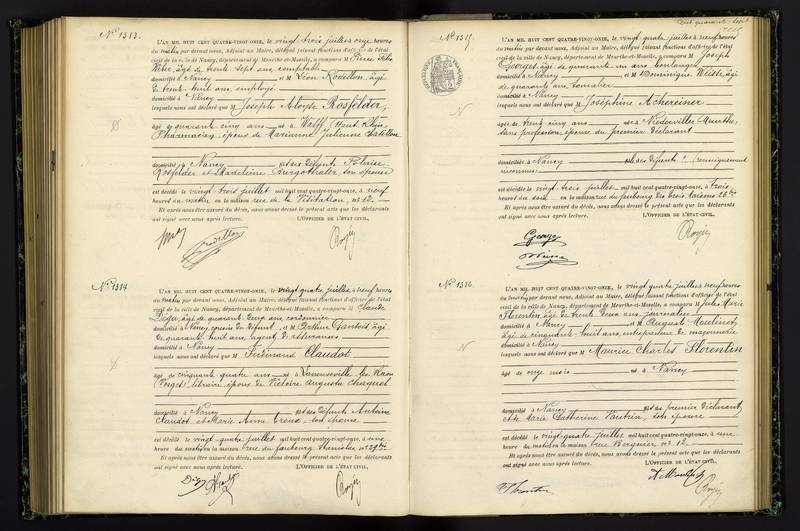 N° 1313.
L'AN MIL HUIT CENT QUATRE-VINGT-ONZE, le vingt trois juillet à onze heures
du matin par devant nous, Adjoint au Maire, délégué faisant fonctions d'officier de l'état
civil de la ville de Nancy, département de Meurthe-et-Moselle, a comparu M Pierre Félix
âgé de trente sept ans, comptable
domicilié à Nancy et M Léon Rodillon, âgé
de trente huit ans, employé
domicilié à Nancy
lesquels nous ont déclaré que M Joseph Aloyse Rosfelder,
âgé de quarante cinq ans né à (Haut-Rhin)
Pharmacien, époux de Marianne Julienne
domicilié à Nancy et ses défunts Blaise
Rosfelder et Madeleine Burgothaler, son épouse
est décédé le vingt trois juillet mil huit cent quatre-vingt-onze, à neuf
heures du matin en la maison rue de la Visitation, n° 12.
Et après nous être assuré du décès, nous avons dressé le présent acte que les déclarants
ont signé avec nous après lecture. L'OFFICIER DE L'ÉTAT CIVIL,
N° 1314
L'AN MIL HUIT CENT QUATRE-VINGT-ONZE, le vingt quatre juillet à neuf heures
du matin par devant nous, Adjoint au Maire, délégué faisant fonctions d'officier de l'état
civil de la ville de Nancy, département de Meurthe-et-Moselle, a comparu M Claude
âgé de quarante deux ans, cordonnier
domicilié à Nancy, cousin du défunt, et M Arthur âgé
de quarante huit ans, agent d'assurances
domicilié à Nancy
lesquels nous ont déclaré que M Ferdinand Claudot
âgé de cinquante quatre ans né à Laneuveville les Raon
(Vosges), libraire, époux de Victoire Augusta
domicilié à Nancy et ses défunts Antoine
Claudot et Marie Anne son épouse
est décédé le vingt quatre juillet mil huit cent quatre-vingt-onze, à une
heure du matin en la maison rue du faubourg Stanislas n° 29
Et après nous être assuré du décès, nous avons dressé le présent acte que les déclarants
ont signé avec nous après lecture. L'OFFICIER DE L'ÉTAT CIVIL,
Cent quarante-sept
N° 1315.
L'AN MIL HUIT CENT QUATRE-VINGT-ONZE, le vingt quatre juillet à neuf heures
du matin par devant nous, Adjoint au Maire, délégué faisant fonctions d'officier de l'état
civil de la ville de Nancy, département de Meurthe-et-Moselle, a comparu M Joseph
Georges, âgé de quarante un ans, boulanger
domicilié à Nancy et M Dominique âgé
de quarante ans
domicilié à Nancy
lesquels nous ont déclaré que M Joséphine Achereiner
âgée de trente cinq ans née à Niederviller (Meurthe)
sans profession, épouse du premier déclarant
domiciliée à Nancy et ses défunts (renseignement
inconnu)
est décédé le vingt trois juillet mil huit cent quatre-vingt-onze, à trois
heures du soir en la maison rue du faubourg des Trois Maisons 26 bis
Et après nous être assuré du décès, nous avons dressé le présent acte que les déclarants
ont signé avec nous après lecture. L'OFFICIER DE L'ÉTAT CIVIL,
George
N° 1316.
L'AN MIL HUIT CENT QUATRE-VINGT-ONZE, le vingt quatre juillet à neuf heures
du matin par devant nous, Adjoint au Maire, délégué faisant fonctions d'officier de l'état
civil de la ville de Nancy, département de Meurthe-et-Moselle, a comparu M Jules Marie
Florentin, âgé de trente deux ans, journalier
domicilié à Nancy et M Auguste Moulinet,
âgé de cinquante huit ans, entrepreneur de maçonnerie
domicilié à Nancy
lesquels nous ont déclaré que M Maurice Charles Florentin
âgé de onze mois né à Nancy
domicilié à Nancy et ses premier déclarant,
et de Marie Catherine Vautrin, son épouse
est décédé le vingt-quatre juillet mil huit cent quatre-vingt-onze, à une
heure du matin en la maison rue n° 12.
Et après nous être assuré du décès, nous avons dressé le présent acte que les déclarants
ont signé avec nous après lecture. L'OFFICIER DE L'ÉTAT CIVIL,
Florentin